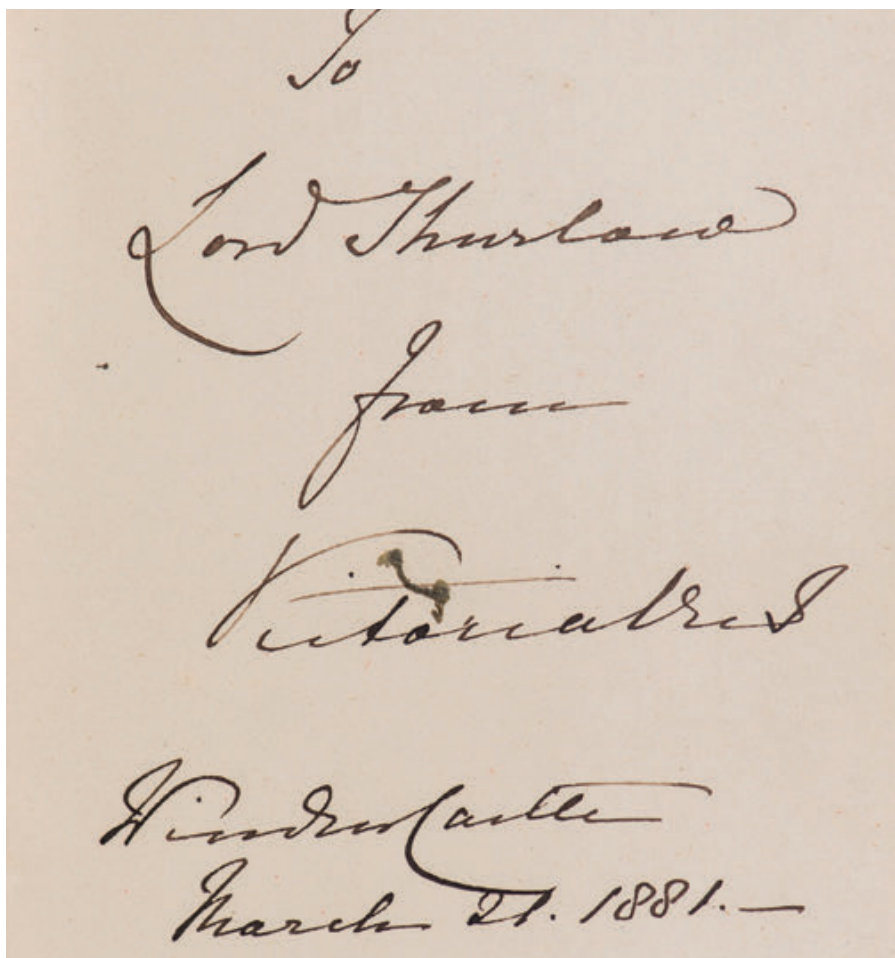 To
Lord Thurlow
from
Victoria R I
Windsor Castle
March 21. 1881.—